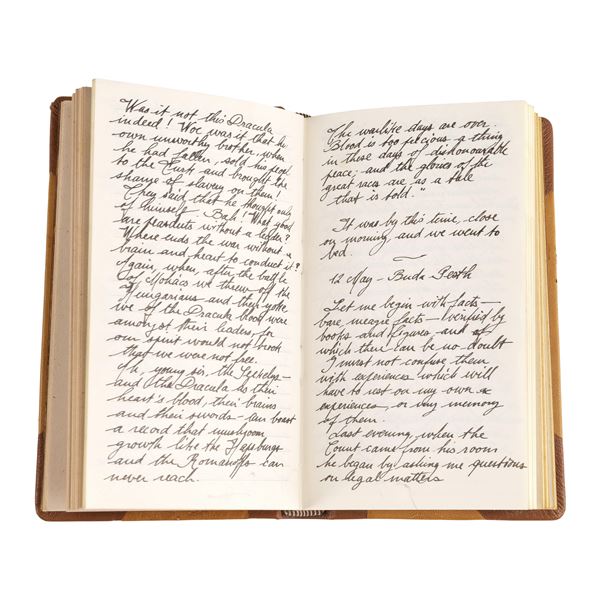 Was it not this Dracula
indeed! Woe was it that his
own unworthy brother, when
he had fallen, sold his people
to the Turk and brought the
shame of slavery on them!
They said that he thought only
of himself. Bah! What good
are peasants without a leader?
Where ends the war without a
brain and heart to conduct it?
Again, when after the battle
of Mohács we threw off the
Hungarians and their yoke
we of the Dracula blood were
amongst their leaders, for
our spirit would not brook
that we were not free.
Oh, young sir, the Szekelys -
and the Dracula as their
heart's blood, their brains
and their swords - can boast
a record that mushroom
growth like the Hapsburgs
and the Romanoffs can
never reach.
The warlike days are over.
Blood is too precious a thing
in these days of dishonourable
peace; and the glories of the
great races are as a tale
that is told."
It was by this time, close
on morning, and we went to
bed.
12 May - Buda-Pesth
Let me begin with facts -
bare, meagre facts - verified by
books and figures, and of
which there can be no doubt
I must not confuse them
with experiences which will
have to rest on my own
experiences, or my memory
of them.
Last evening, when the
Count came from his room
he began by asking me questions
on legal matters